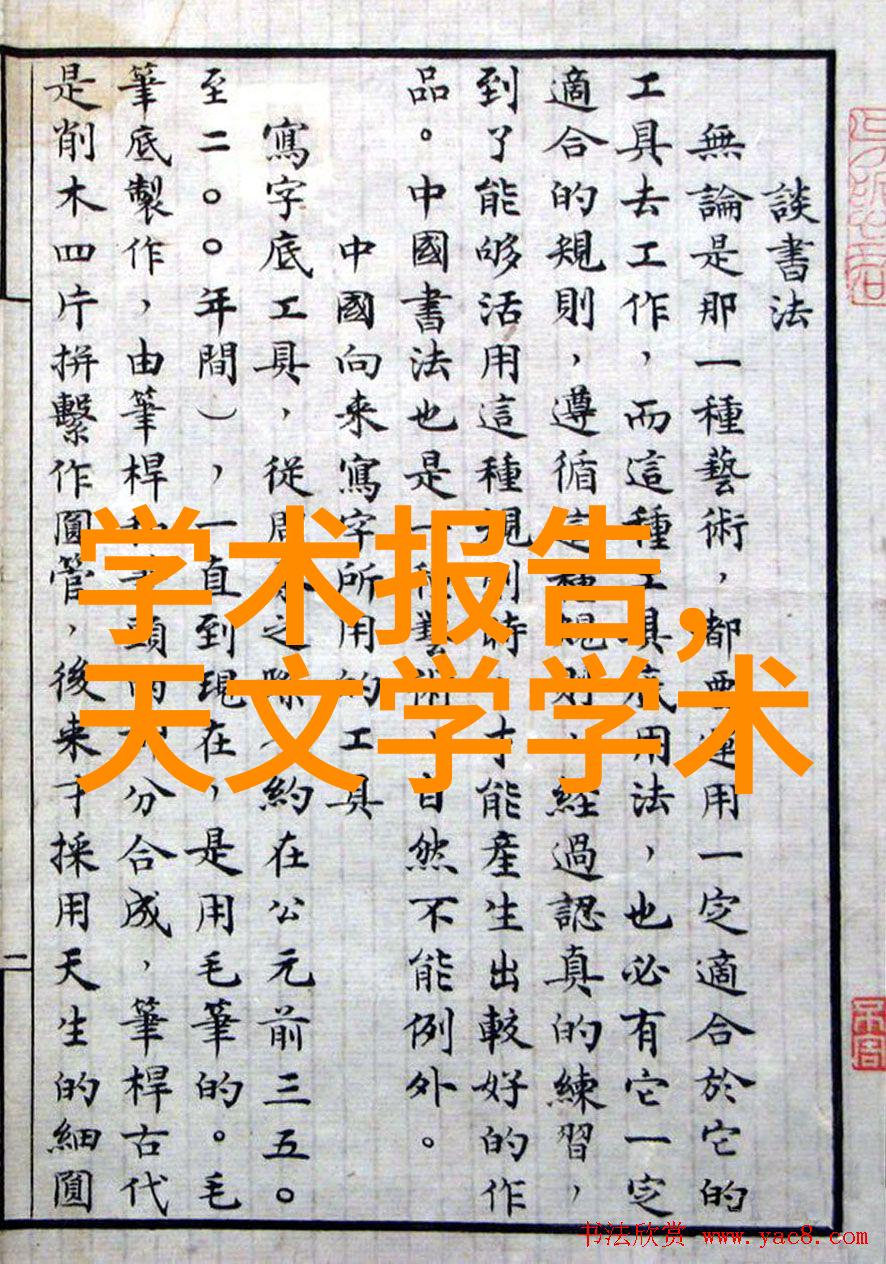 談書法
無論是那一種藝術，都要運用一定適合於它的
工具去工作，而這種工具底用法，也必有它一定
適合的規則，遵循這種規則，經過認真的練習，
到了能够活用這種規則時，才能產生出較好的作
品。中國書法也是一種藝術，自然不能例外。
中國向来寫字所用的工具
寫字底工具，從周之際約在公元前三五〇
至二〇〇年間），一直到現在，是用毛筆的。毛
筆底製作，由筆桿筆頭兩分合成，筆桿古代
是削木四片拼繫作圓管，後来才採用天生的細圓
二
学术报告,
天文学学术
书法欣赏 www.yac8.com